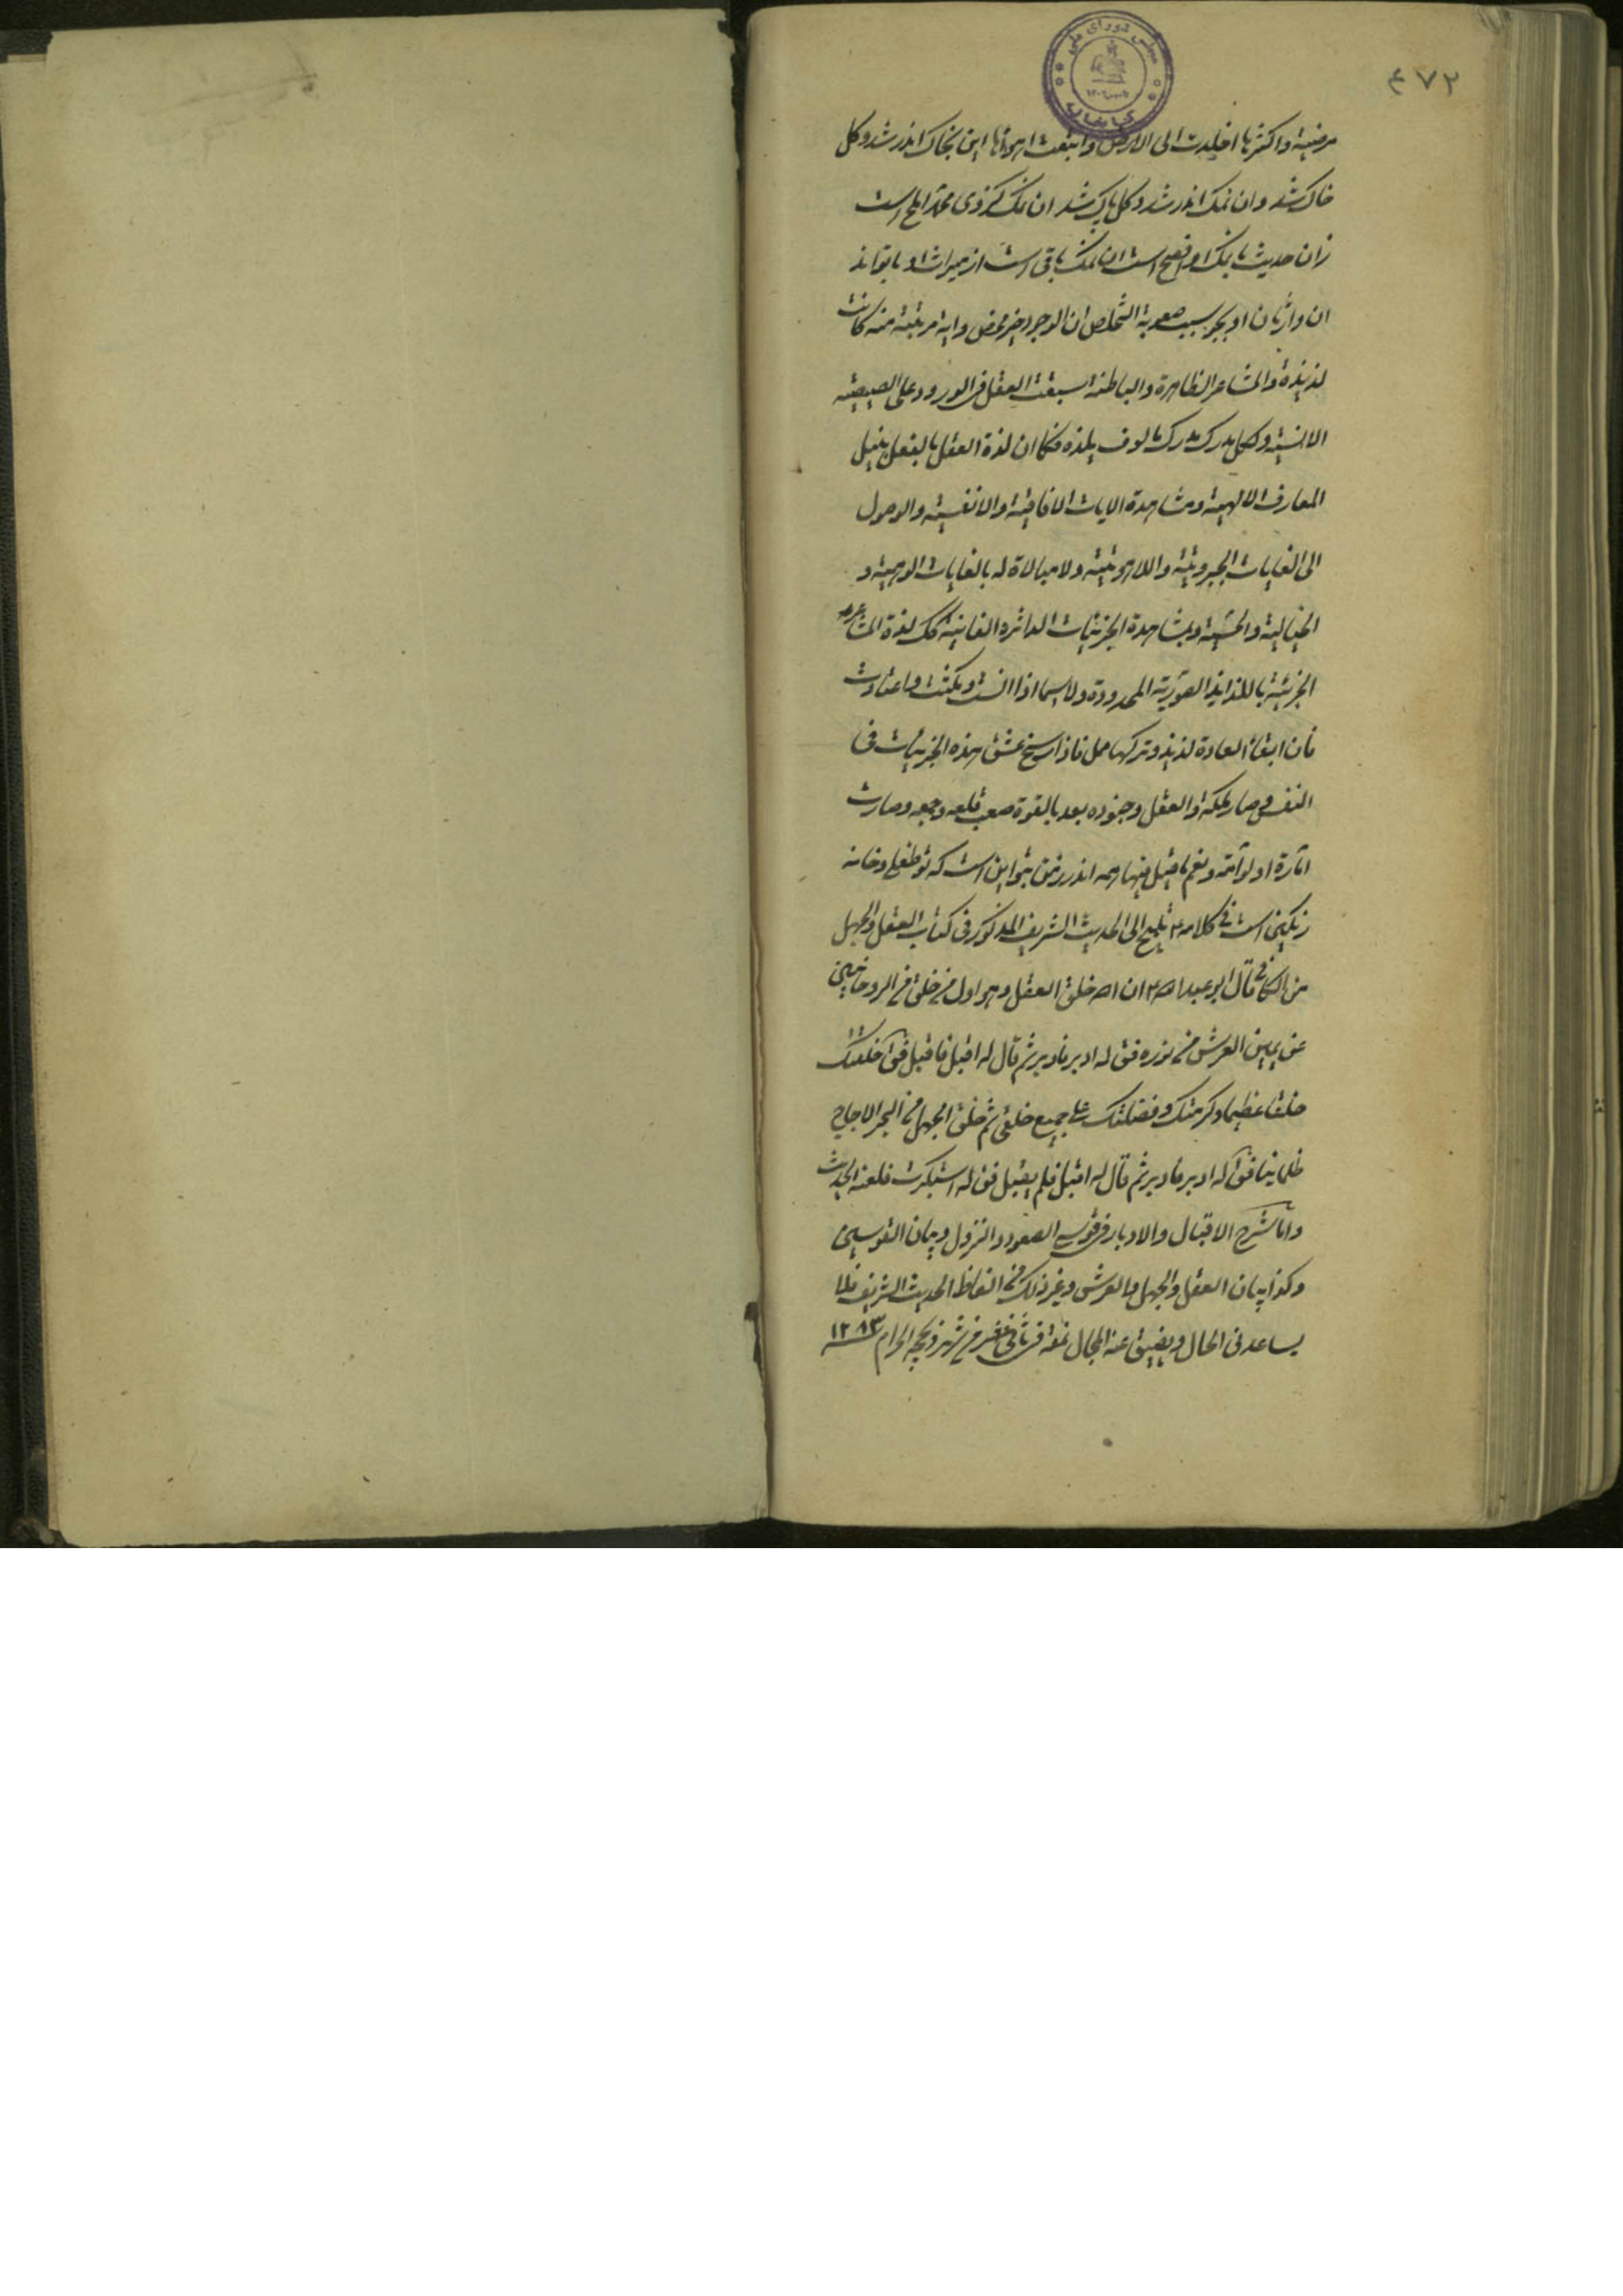 ۴۷۲
مجلس شورای ملی
کتابخانه
مرضیة و اکثرها اخلدت الی الارض و اتبعت اهوائها این بخاک اندر شد و کل
خاک شد وان نمک اندر شد و کل پاک شد ان نمک کزوی محمد املح است
زان حدیث با نمک او افصح است ان نمک باقی است از میراث او با تواند
ان وارثان او بجو سبب صعوبة التخلص ان الوجود خیر محض و ایة مرتبة منه کانت
لذیذة و المشاعر الظاهرة والباطنة سبقت العقل فی الورود علی الصیصیة
الانسیة و لکل مدرک مدرک مالوف یلذه فکما ان لذة العقل بالفعل بنیل
المعارف الالهیة و مشاهدة الایات الافاقیة والانفسیة والوصول
الی الغایات الجبروتیة واللاهوتیة ولا مبالاة له بالغایات الوهمیة و
الخیالیة والحسیة وبمشاهدة الجزئیات الداثرة الفانیة فکک لذة المشاعر
الجزئیة باللذایذ الصوریة المحدودة ولا سیما اذا انست وتمکنت واعتادت
فان ابقاء العادة لذیذ وترکها مل فاذا رسخ عشق هذه الجزئیات فی
النفس وصار ملکة والعقل وجنوده بعد بالقوة صعب قلعه وقمعه وصارت
امارة او لوامة ونعم ما قیل فیها همه اندرز من بتو این است که تو طفلی و خانه
رنگین است فی کلامه ۴ تلمیح الی الحدیث الشریف المذکور فی کتاب العقل والجهل
من الکافی قال ابو عبد الله ۴ ان الله خلق العقل وهو اول من خلق من الروحانیین
عن یمین العرش من نوره فق له ادبر فادبر ثم قال له اقبل فاقبل فق الله خلقتک
خلقا عظیما وکرمتک وفضلتک علی جمیع خلقی ثم خلق الجهل من البحر الاجاج
ظلمانیا فق له ادبر فادبر ثم قال له اقبل فلم یقبل فق له استکبرت فلعنه الحدیث
واما شرح الاقبال والادبار فی قوسی الصعود والنزول وبیان القوسین
وکذا بیان العقل والجهل والعرش وغیر ذلک من الفاظ الحدیث الشریف فلا
یساعدنی الحال ویضیق عنه المجال نمقه فی ثانی عشر من شهر ذیحجه الحرام ۱۲۸۳